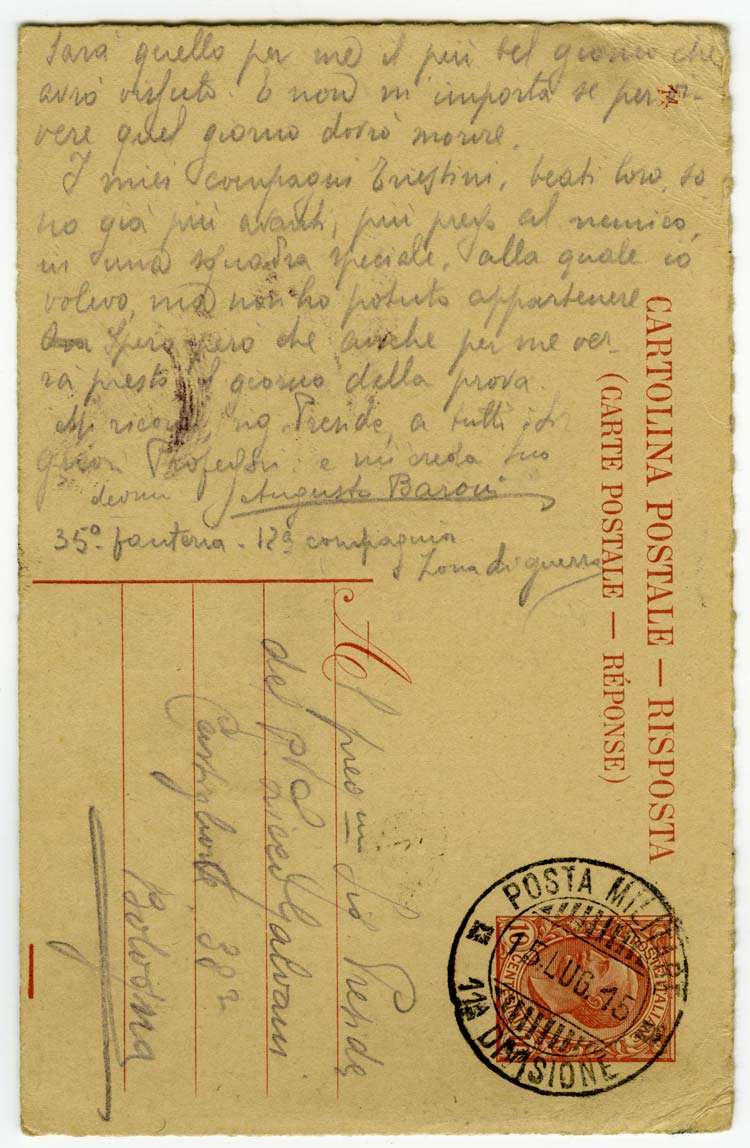 sarà quello per me il più bel giorno che
avrò vissuto. E non m'importa se per vi-
vere quel giorno dovrò morire.
I miei compagni Ernestini, beati loro, so
no già più avanti, più presso al nemico,
in una squadra speciale, alla quale io
volevo, ma non ho potuto appartenere
Spero però che anche per me ver-
rà presto il giorno della prova.
Mi ricordi, sig. Preside, a tutti i Si
gnori Professori e mi creda Suo
devmo Augusto Baroni
35º fanteria - 12ª compagnia
Zona di guerra
CARTOLINA POSTALE — RISPOSTA
(CARTE POSTALE — RÉPONSE)
Al preg mo Sig Preside
del Liceo Galvani
Castiglione 38
Bologna
POSTA MILITARE
15.LUG.15
11ª DIVISIONE
POSTE ITALIANE
10 CENT